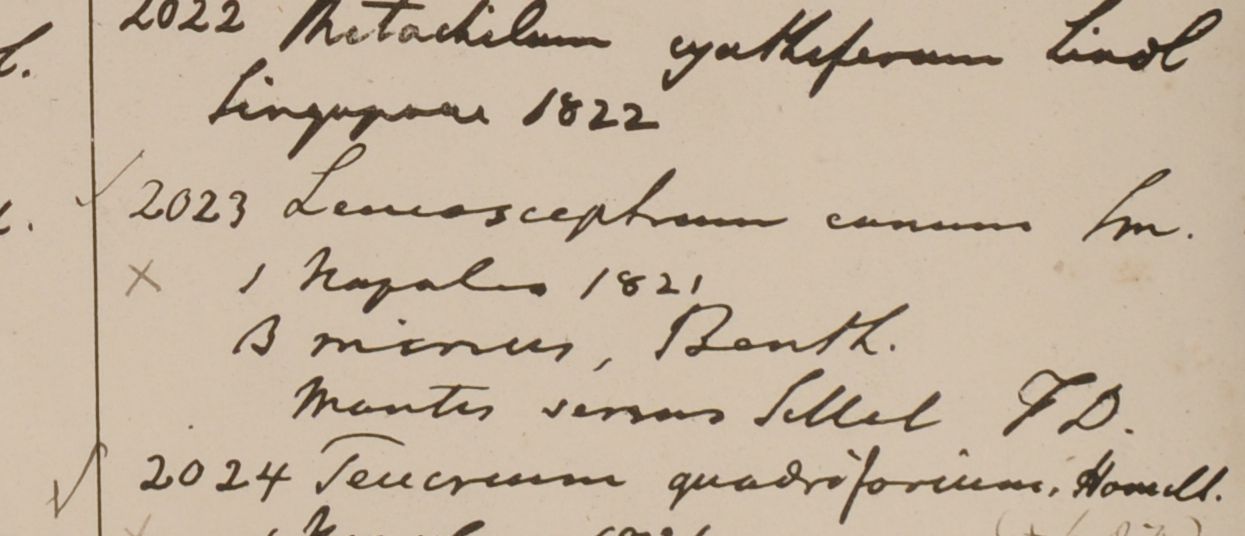 2022 Metachilum cyathiferum Lindl
Singapore 1822
2023 Leucosceptrum canum Sm.
1 Napalia 1821
B minus, Benth.
Montes versus Sillet F D.
2024 Teucrium quadrifarium, Hamilt.